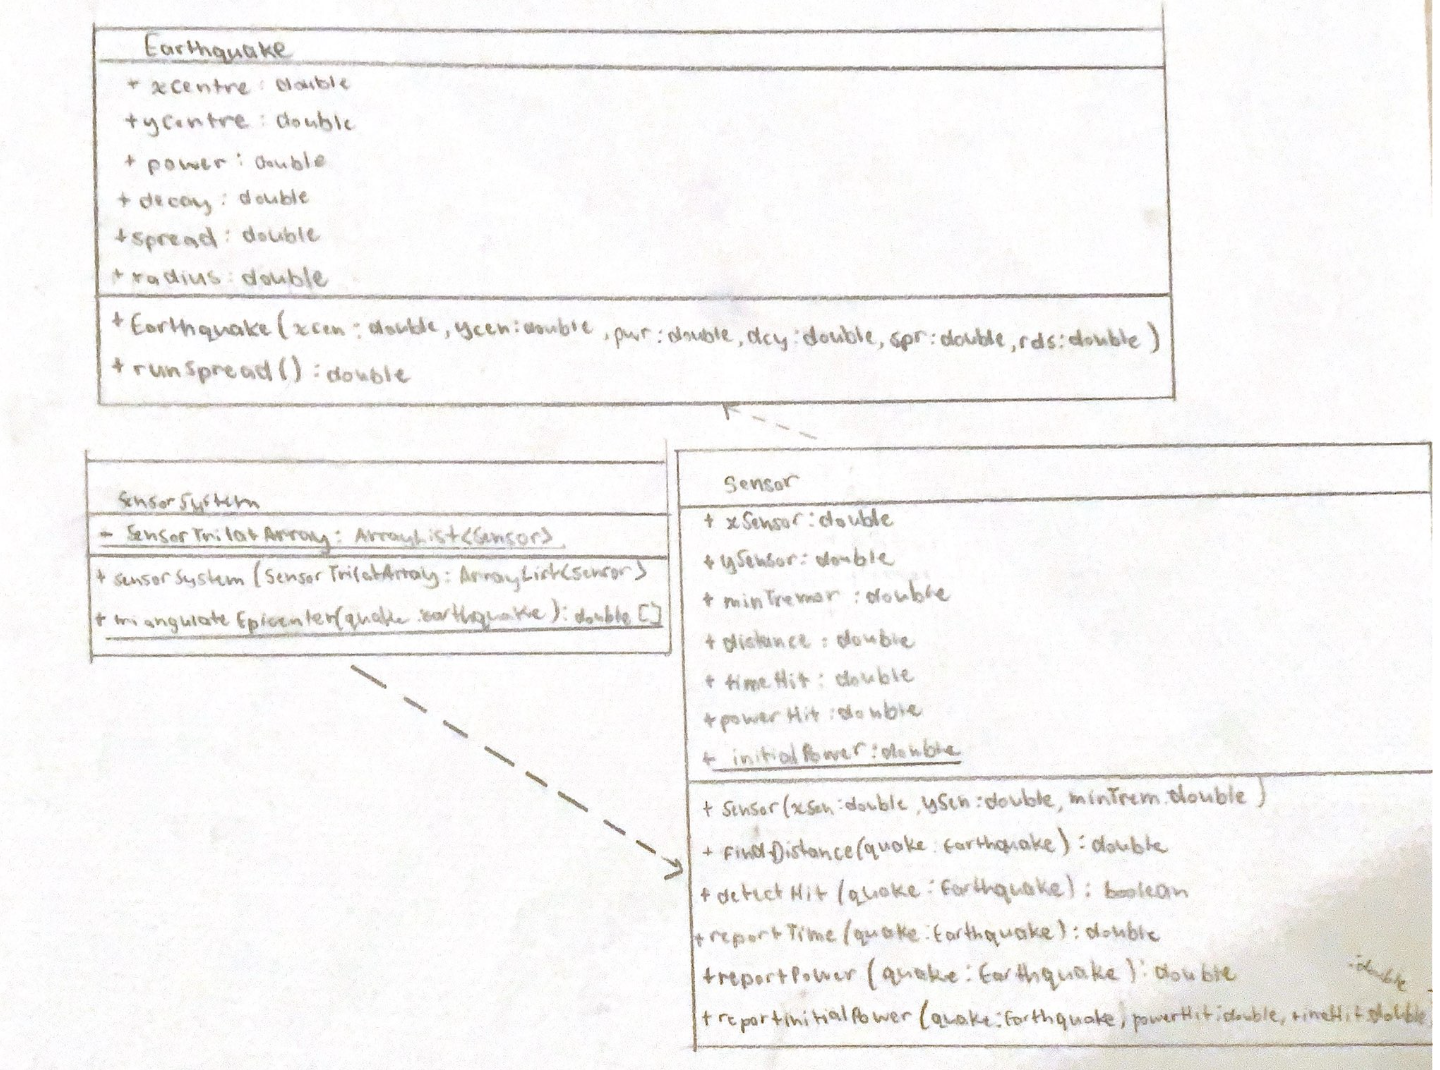 Earthquake
+ xcentre : double
+ ycentre : double
+ power : double
+ decay : double
+ spread : double
+ radius : double
+ Earthquake (xcen : double, ycen : double, pwr : double, dcy : double, spr : double, rds : double)
+ runSpread() : double
SensorSystem
- SensorTrilatArray : ArrayList<Sensor>
+ sensorSystem (SensorTrilatArray : ArrayList<Sensor>
+ triangulateEpicenter(quake : earthquake) : double []
Sensor
+ xSensor : double
+ ySensor : double
+ minTremor : double
+ distance : double
+ timeHit : double
+ powerHit : double
+ initialPower : double
+ Sensor(xSen : double, ySen : double, minTrem : double)
+ findDistance(quake : Earthquake) : double
+ detectHit (quake : Earthquake) : boolean
+ reportTime (quake : Earthquake) : double
+ reportPower (quake : Earthquake) : double
: double
+ reportinitialPower (quake : Earthquake, powerHit : double, timeHit : double